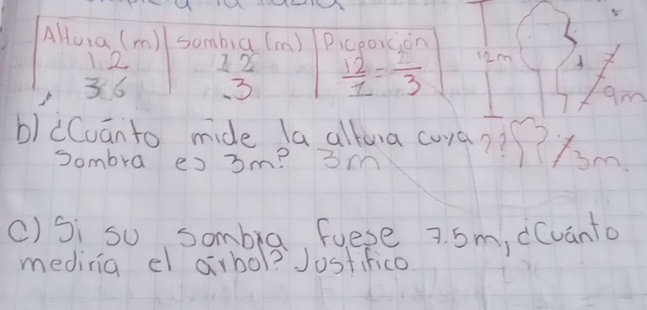 Altura (m) Sombra (m) Proporción
1.2 12 12/1 = 1/3
36 .3
12m
9m
b) ¿Cuánto mide la altura cuya ??
Sombra es 3m? 3m
3m
c) Si su sombra fuese 7.5m, ¿Cuánto
mediría el árbol? Justifico